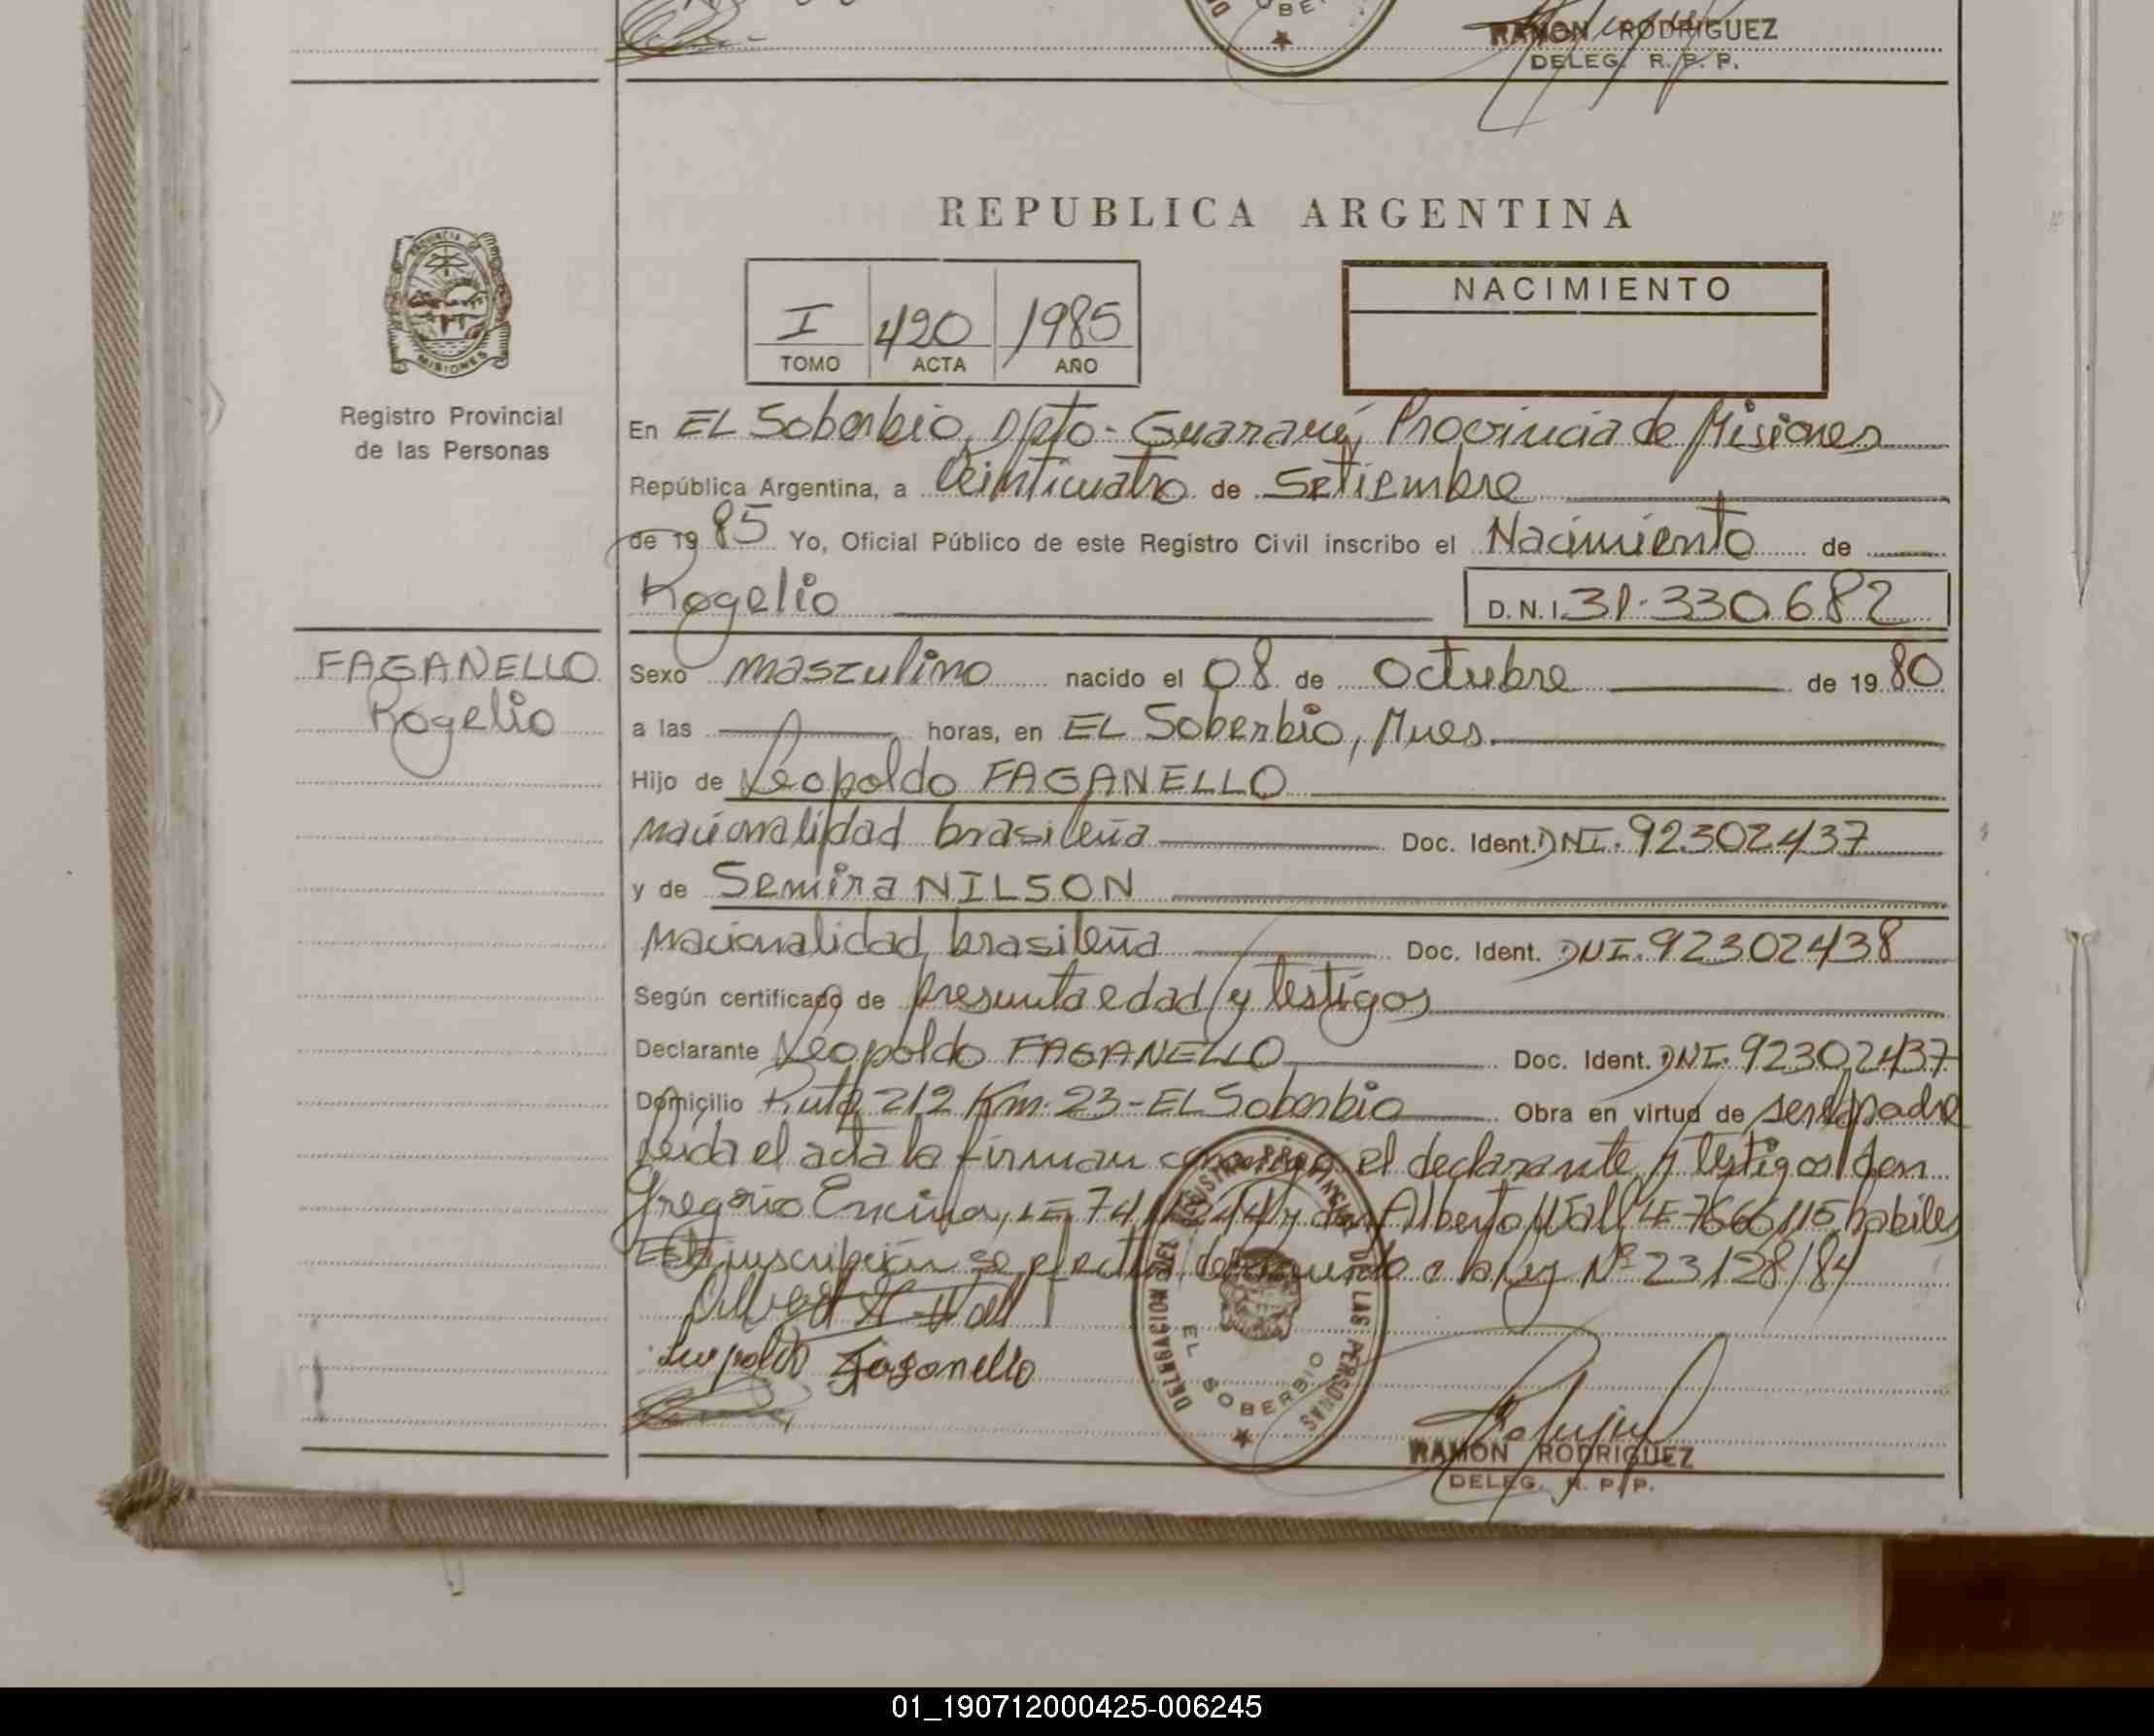 RAMON RODRIGUEZ
DELEG. R. P. P.
REPUBLICA ARGENTINA
PROVINCIA DE
MISIONES
Registro Provincial
de las Personas
I 420 1985
TOMO ACTA AÑO
NACIMIENTO
En EL Soberbio, Dpto- Guaraní, Provincia de Misiones
República Argentina, a Veinticuatro de Setiembre
de 1985 Yo, Oficial Público de este Registro Civil inscribo el Nacimiento de
Rogelio D.N.I. 31.330.682
FAGANELLO
Rogelio
Sexo masculino nacido el 08 de Octubre de 1980
a las horas, en EL Soberbio, Mnes.
Hijo de Leopoldo FAGANELLO
nacionalidad brasileña Doc. Ident. DNI. 92302437
y de Semira NILSON
nacionalidad brasileña Doc. Ident. DNI. 92302438
Según certificado de presunta edad y testigos
Declarante Leopoldo FAGANELLO Doc. Ident. DNI. 92302437
Domicilio Ruta 212 Km. 23-EL Soberbio Obra en virtud de ser el padre
Leida el acta la firman conmigo el declarante y testigos don
Gregorio Encina, LE y don Alberto Wall LE 7666115 habiles
Esta inscripción se efectua de acuerdo a la ley Nº 23128/84
Wall
Leopoldo Faganello
DELEGACION DEL REGISTRO PROVINCIAL DE LAS PERSONAS
EL SOBERBIO
RAMON RODRIGUEZ
DELEG. R. P. P.
01_190712000425-006245